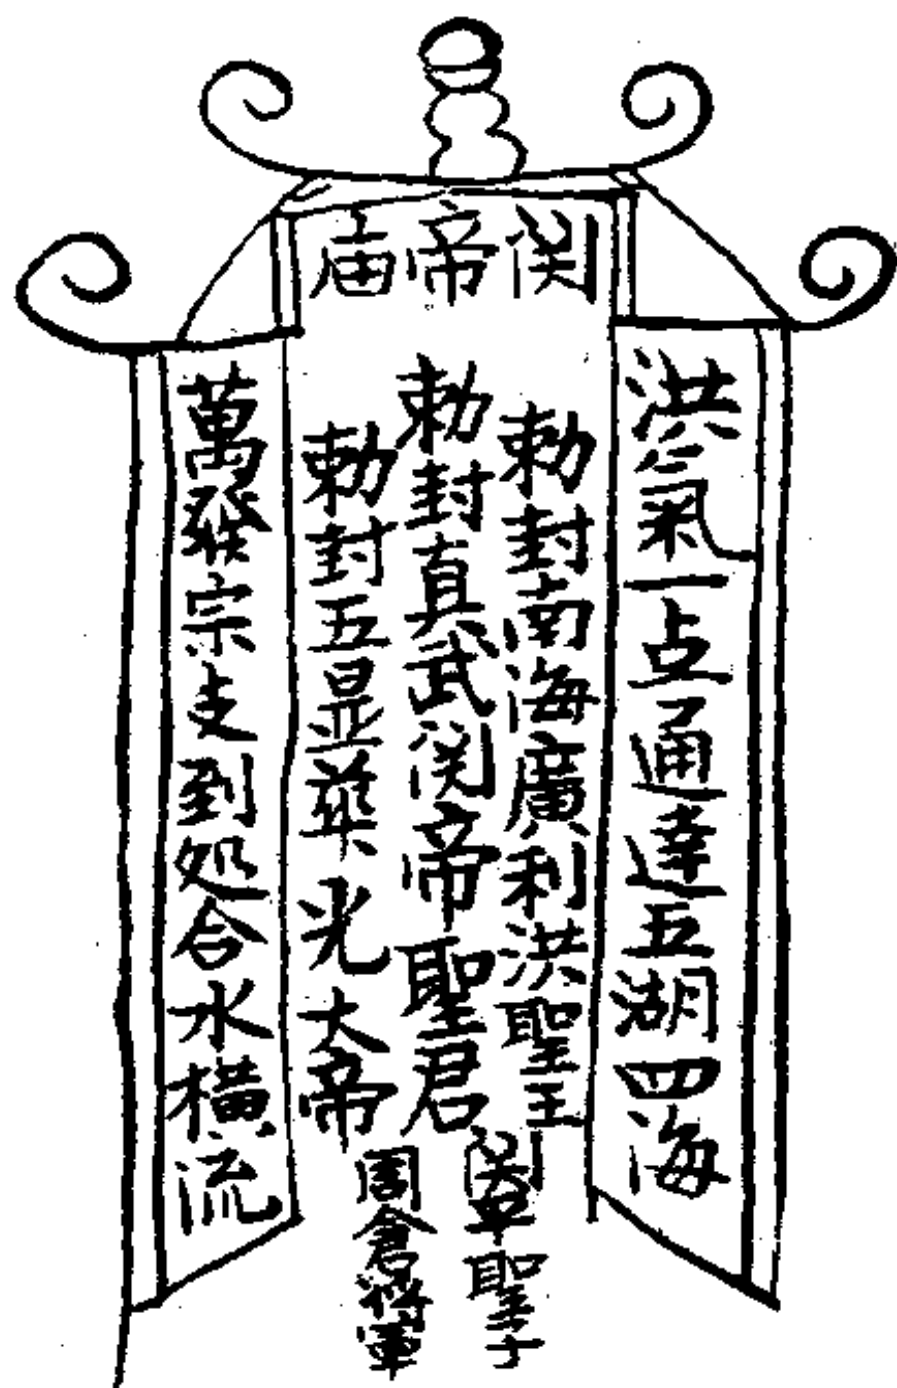 関帝庙
洪氣一点通達五湖四海
勅封南海廣利洪聖王
勅封真武関帝聖君
勅封五显華光大帝
関平聖子
周倉將軍
萬發宗支到処合水橫流